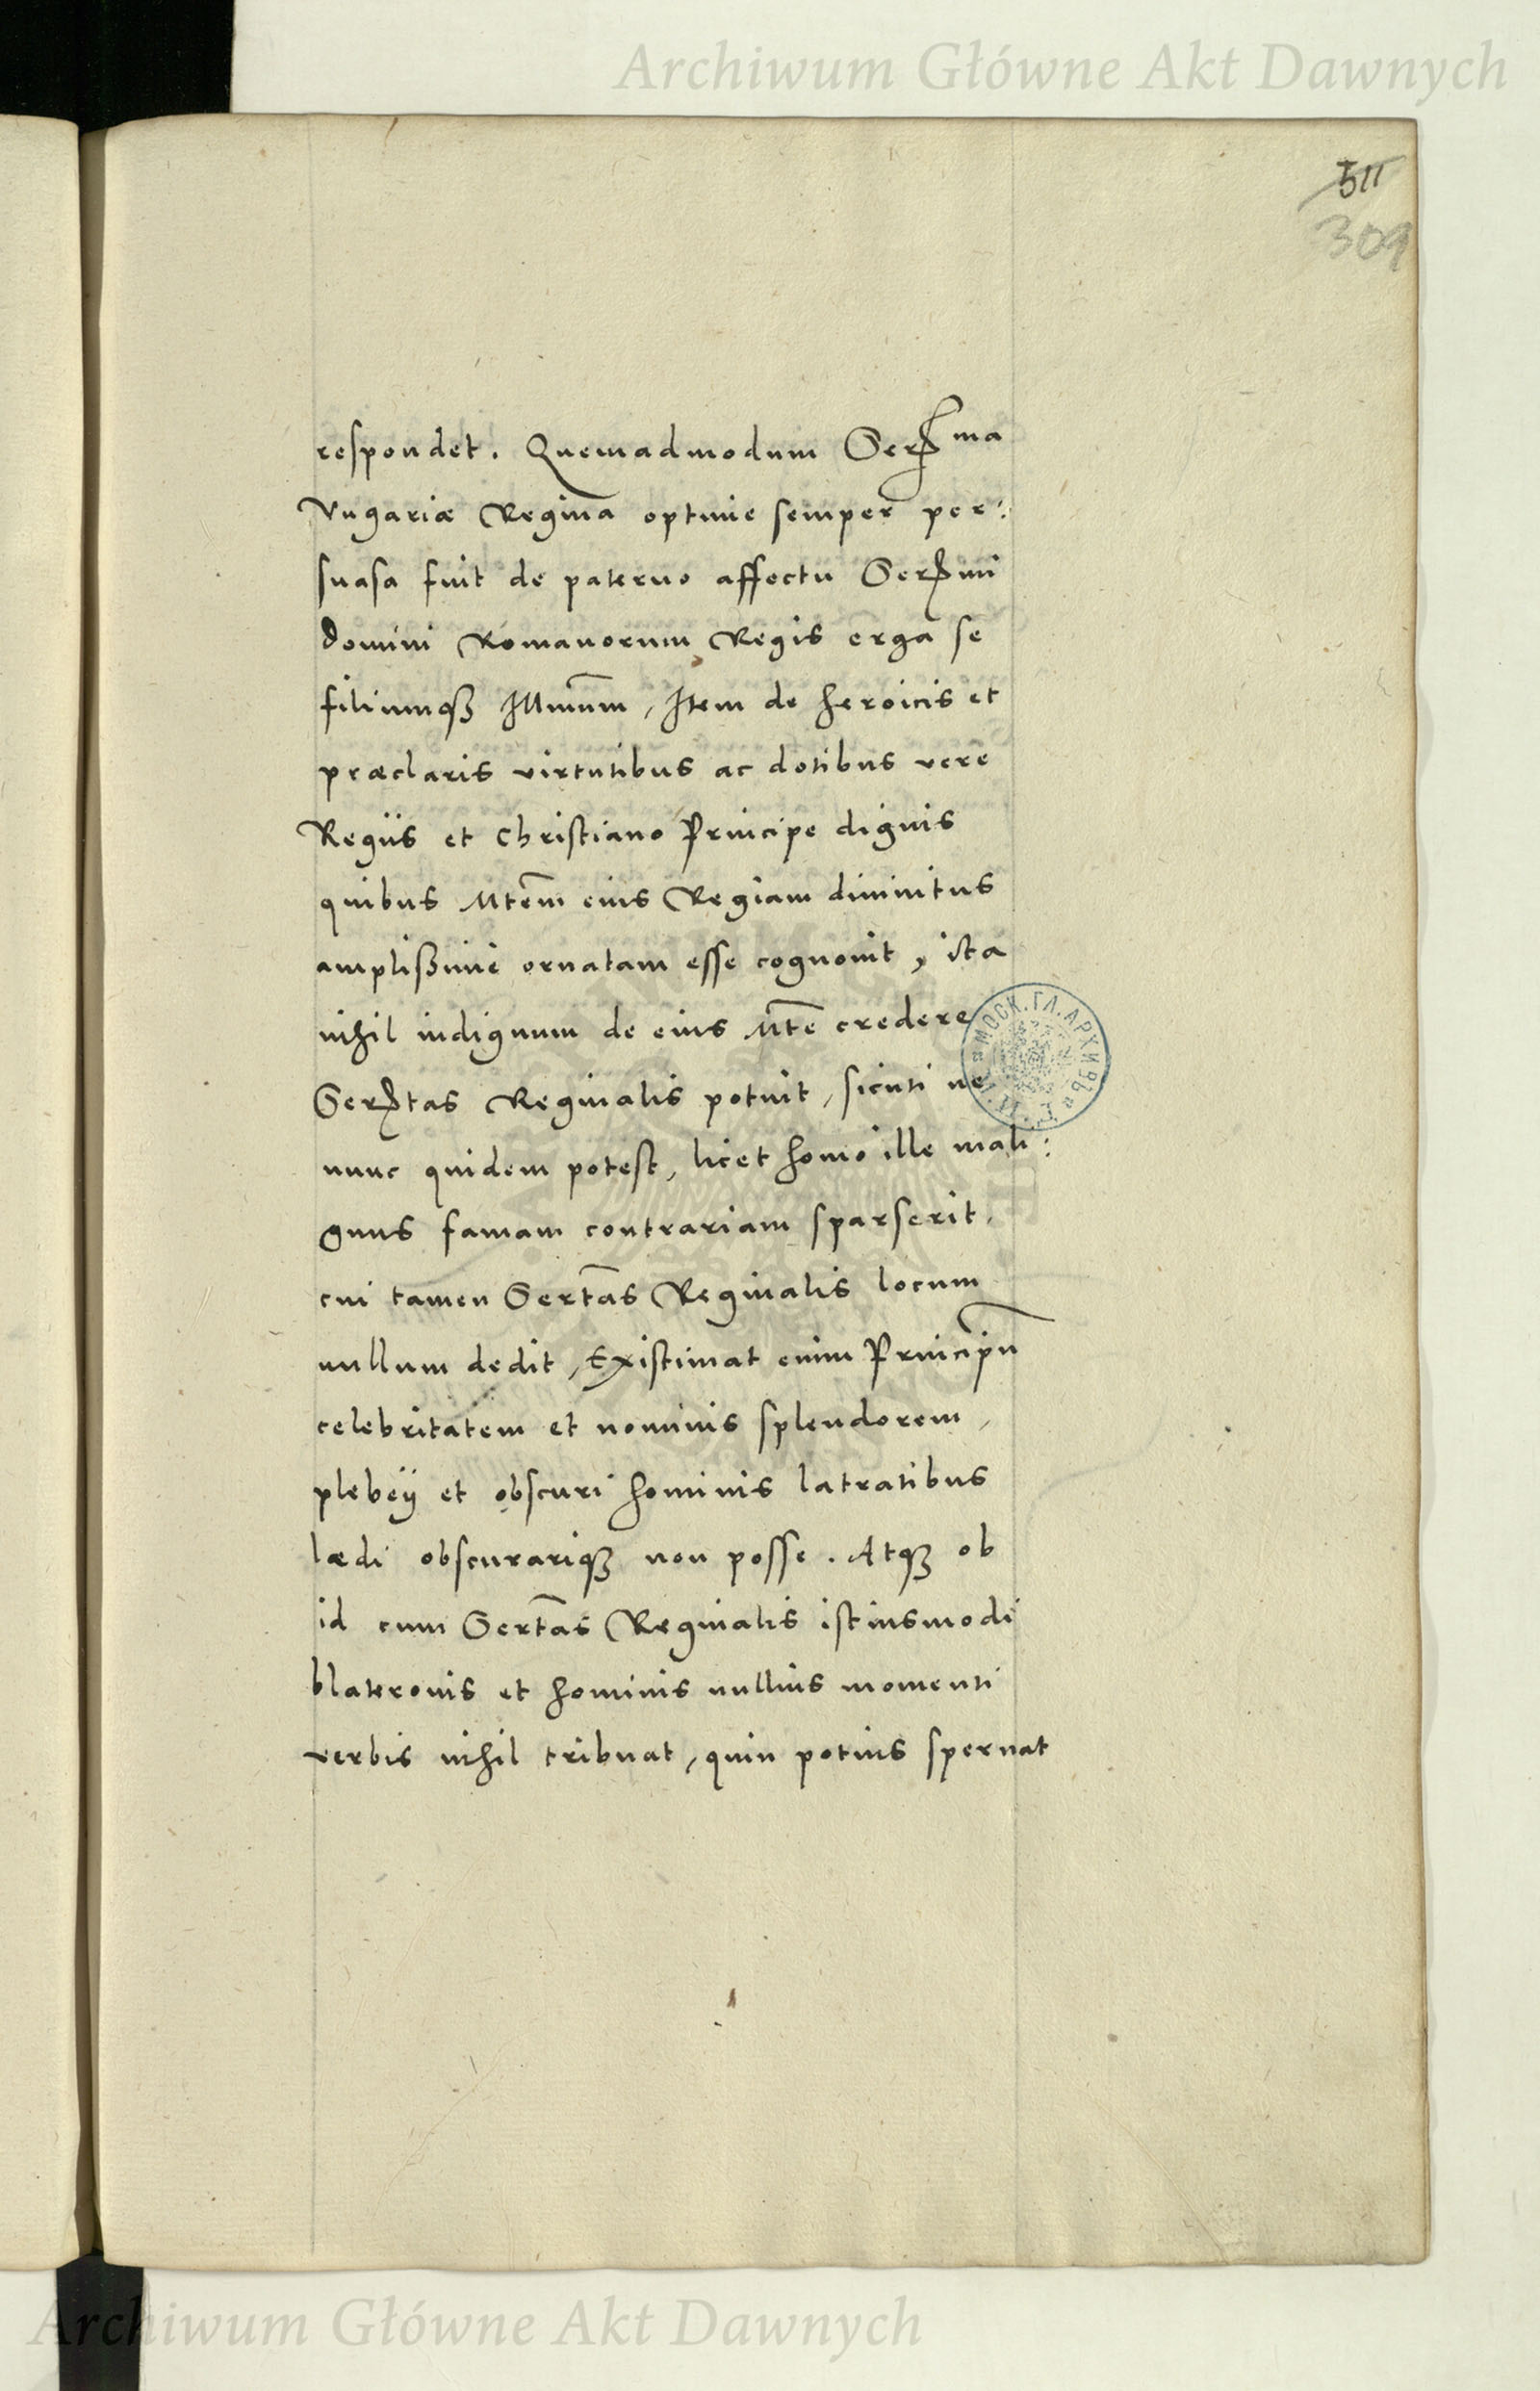 Archiwum Główne Akt Dawnych
511
309
respondet. Quemadmodum Serma
Vngariæ Regina optime semper per:
suasa fuit de paterno affectu Sermi
domini Romanorum Regis erga se
filiumq3 Illmum, Item de heroicis et
præclaris virtutibus ac dotibus vere
Regiis et Christiano Principe dignis
quibus Mtem eius Regiam diuinitus
amplißime ornatam esse cognouit, ita
nihil indignum de eius Mte credere
Sertas Reginalis potuit, sicuti ne
nunc quidem potest, licet homo ille mali:
gnus famam contrariam sparserit,
cui tamen Sertas Reginalis locum
nullum dedit, Existimat enim Principu
celebritatem et nominis splendorem,
plebeÿ et obscuri hominis latratibus
lædi obscurariq3 non posse. Atq3 ob
id cum Sertas Reginalis istiusmodi
blateronis et hominis nullius momenti
verbis nihil tribuat, quin potius spernat
МОСК. ГЛ. АРХИВЪ
Archiwum Główne Akt Dawnych